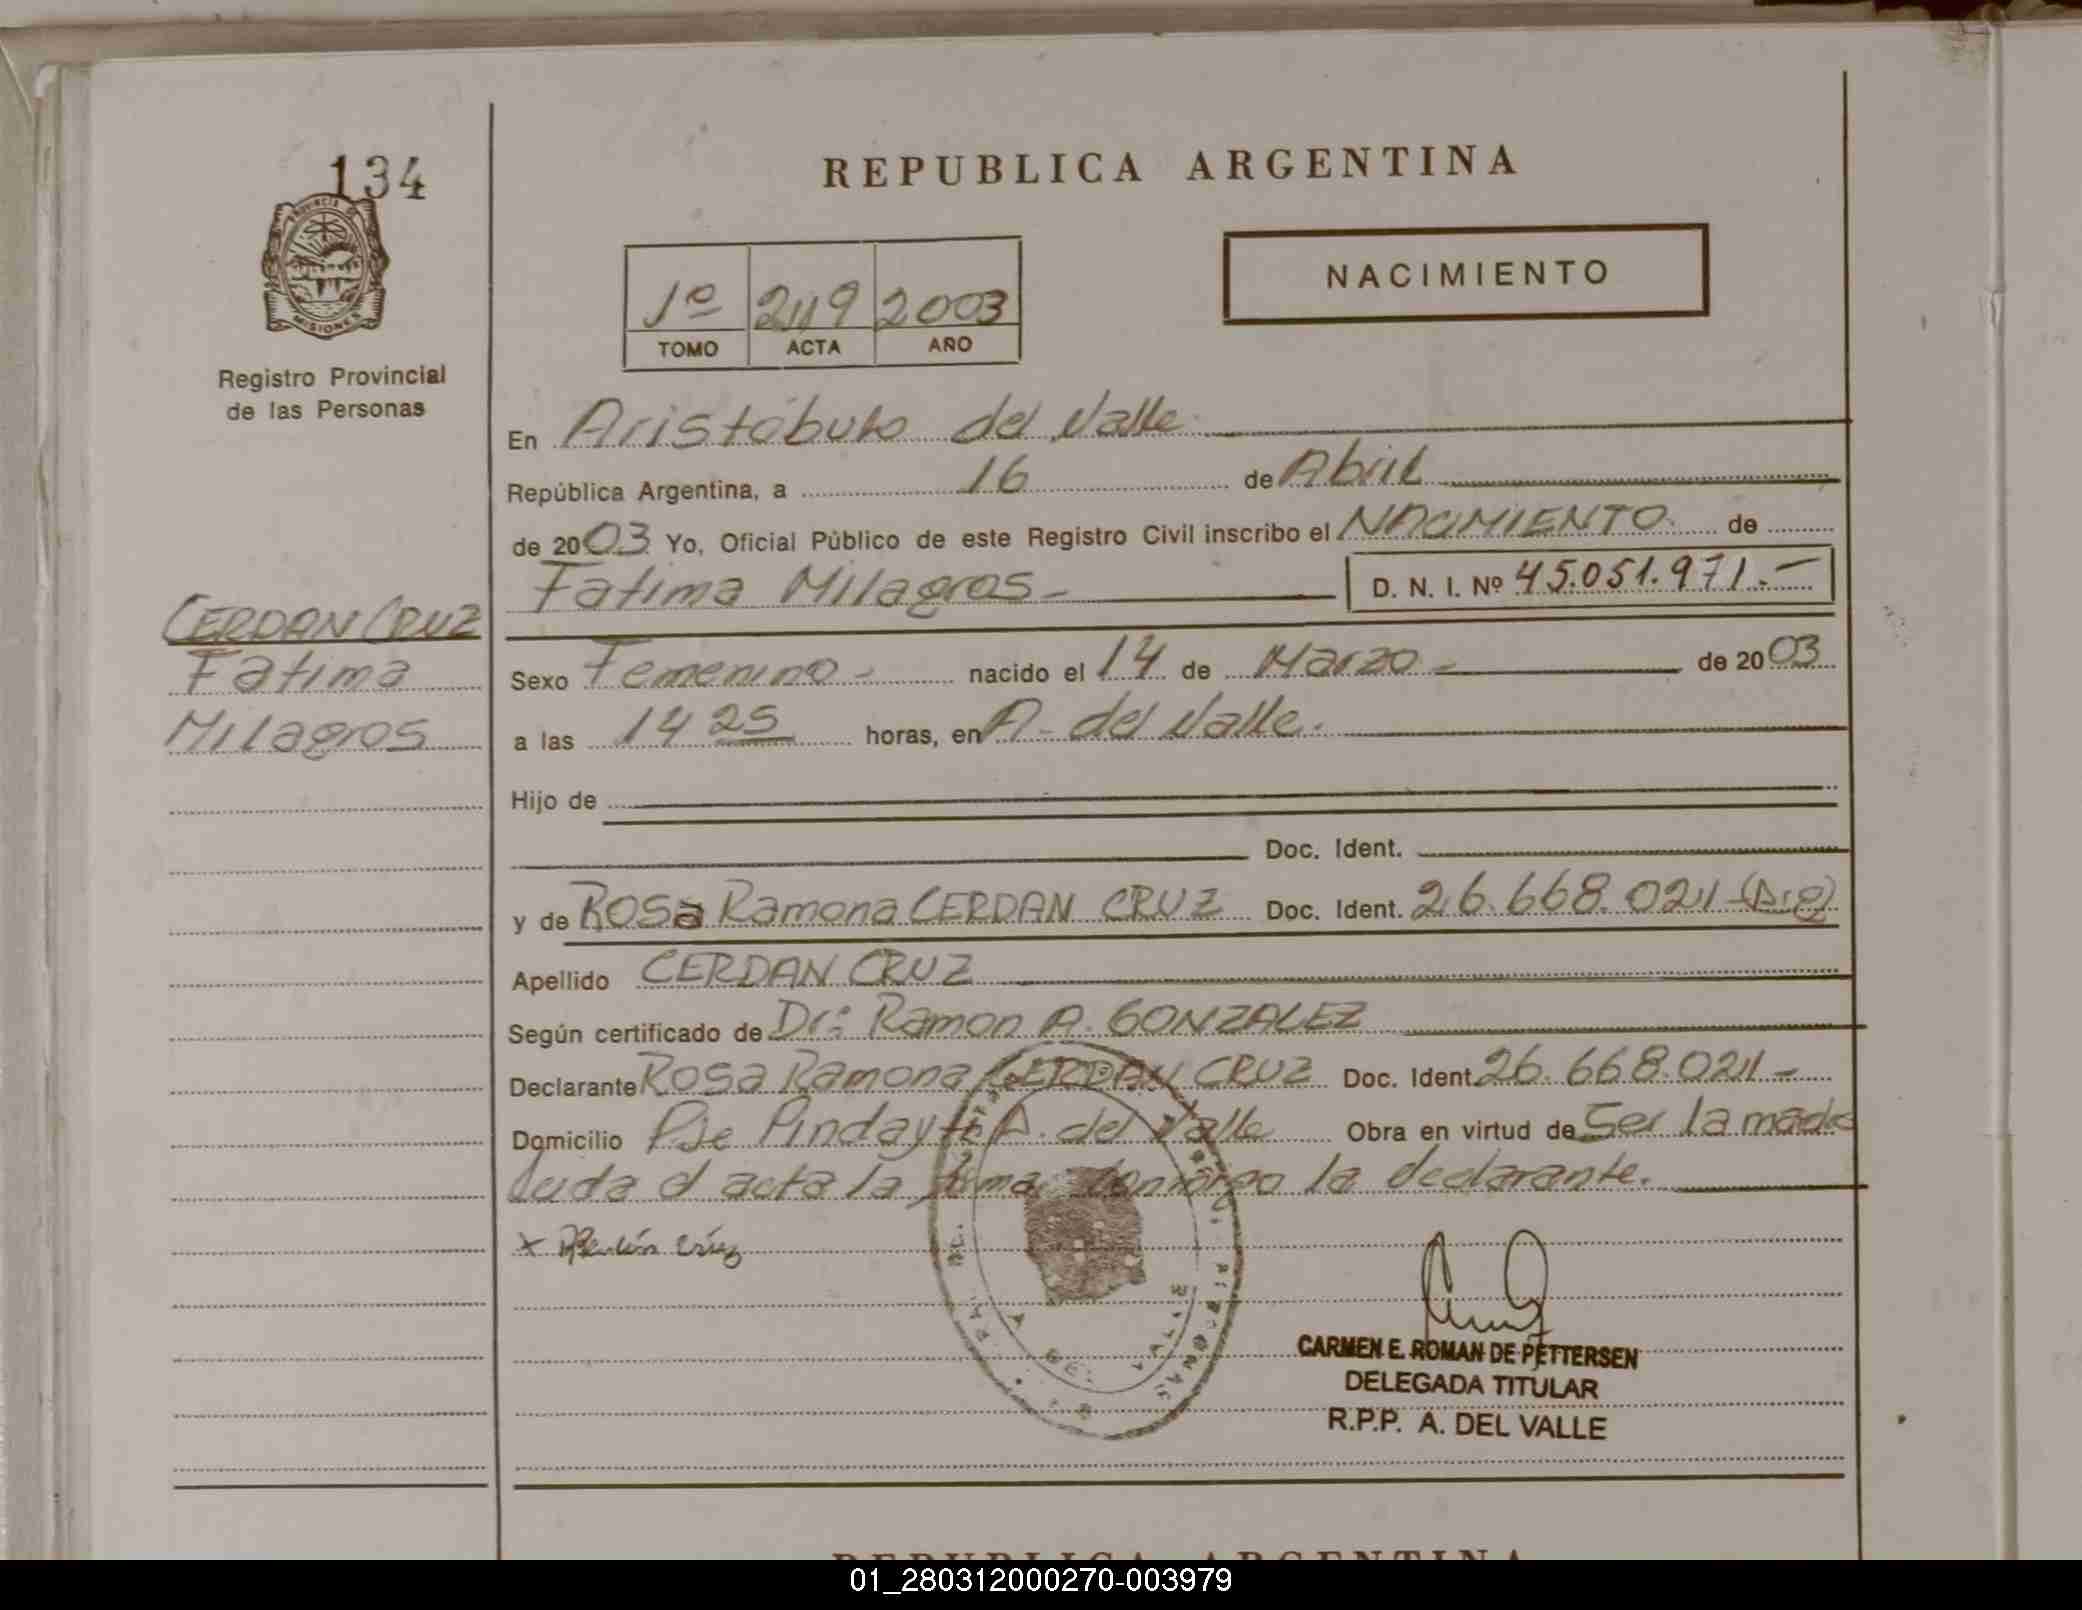 134
PROVINCIA DE
MISIONES
Registro Provincial
de las Personas
CERDAN CRUZ
Fatima
Milagros
REPUBLICA ARGENTINA
1º 2003
TOMO ACTA AÑO
NACIMIENTO
En Aristóbulo del Valle.
República Argentina, a 16 de Abril
de 2003 Yo, Oficial Público de este Registro Civil inscribo el NACIMIENTO. de
Fatima Milagros - D. N. I. Nº 45.051.971.-
Sexo Femenino - nacido el 14 de Marzo - de 2003
a las 14 25 horas, en A. del Valle.
Hijo de
Doc. Ident.
y de Rosa Ramona CERDAN CRUZ Doc. Ident. 26.668.021 (Arg)
Apellido CERDAN CRUZ
Según certificado de Dr: Ramon A. GONZALEZ
Declarante Rosa Ramona CERDAN CRUZ Doc. Ident. 26.668.021 -
Domicilio Pje A. del Valle Obra en virtud de Ser la madre
Leida el acta la firma conmigo la declarante.
x
CARMEN E. ROMAN DE PETTERSEN
DELEGADA TITULAR
R.P.P. A. DEL VALLE
REPUBLICA ARGENTINA
01_280312000270-003979